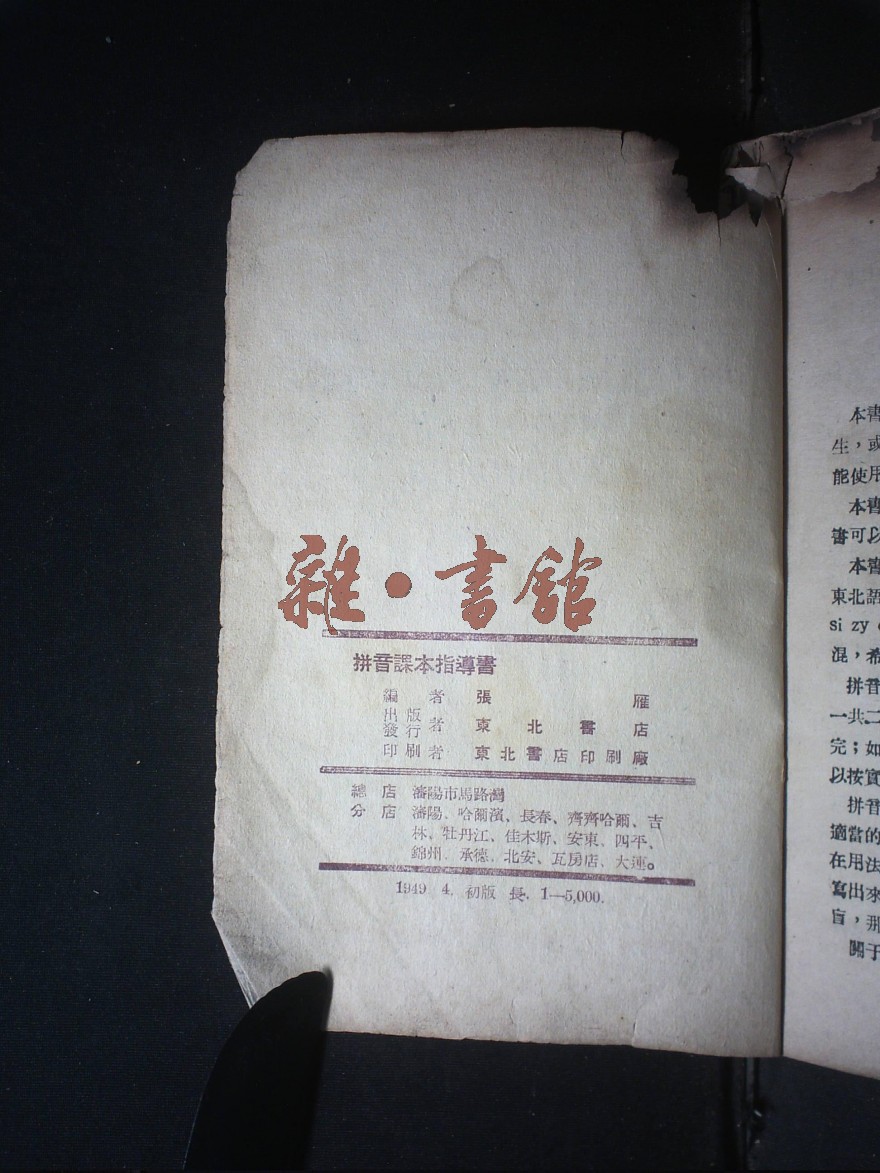 雜·書館
拼音課本指導書
編者 張雁
出版
發行者 東北書店
印刷者 東北書店印刷廠
總店 瀋陽市馬路灣
分店 瀋陽、哈爾濱、長春、齊齊哈爾、吉
林、牡丹江、佳木斯、安東、四平、
錦州、承德、北安、瓦房店、大連。
1949. 4. 初版 長. 1—5,000.
本書
生，或
能使用
本書
書可以
本書
東北語
si zy
混，希
拼音
一共二
完；如
以按實
拼音
適當的
在用法
寫出來
盲，那
關于